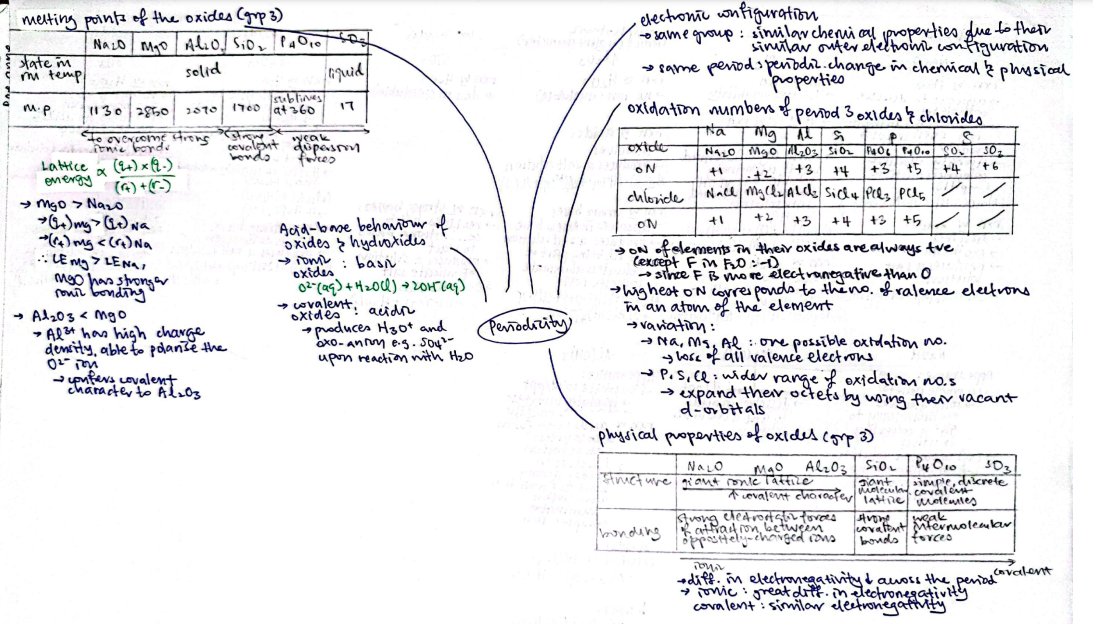 melting points of the oxides (grp 3)
Na2O MgO Al2O3 SiO2 P4O10 SO3
state in rm temp solid liquid
m.p 1130 2850 2070 1700 sublimes at 360 17
to overcome strong ionic bonds
strong covalent bonds
weak dispersion forces
Lattice energy ∝ (q+)×(q-) / (r+)+(r-)
→ MgO > Na2O
→ (q+)mg > (q+)Na
→ (r+)mg < (r+)Na
∴ LE mg > LE Na,
MgO has stronger
ionic bonding
→ Al2O3 < MgO
→ Al3+ has high charge
density, able to polarise the
O2- ion
→ confers covalent
character to Al2O3
Acid-base behaviour of
oxides & hydroxides
→ ionic oxides : basic
O2-(aq) + H2O(l) → 2OH-(aq)
→ covalent oxides : acidic
→ produces H3O+ and
oxo-anion e.g. SO42-
upon reaction with H2O
Periodicity
electronic configuration
→ same group : similar chemical properties due to their
similar outer electronic configuration
→ same period : periodic change in chemical & physical
properties
oxidation numbers of period 3 oxides & chlorides
Na Mg Al Si P S
oxide Na2O MgO Al2O3 SiO2 P4O6 P4O10 SO2 SO3
ON +1 +2 +3 +4 +3 +5 +4 +6
chloride NaCl MgCl2 AlCl3 SiCl4 PCl3 PCl5
ON +1 +2 +3 +4 +3 +5
→ ON of elements in their oxides are always +ve
(except F in F2O : -1)
→ since F is more electronegative than O
→ highest ON corresponds to the no. of valence electrons
in an atom of the element
→ variation :
→ Na, Mg, Al : one possible oxidation no.
→ loss of all valence electrons
→ P, S, Cl : wider range of oxidation no.s
→ expand their octets by using their vacant
d-orbitals
physical properties of oxides (grp 3)
Na2O MgO Al2O3 SiO2 P4O10 SO3
structure giant ionic lattice
↑ covalent character
giant molecular lattice
simple, discrete covalent molecules
bonding strong electrostatic forces
of attraction between
oppositely-charged ions
strong covalent bonds
weak intermolecular forces
ionic covalent
→ diff. in electronegativity ↓ across the period
→ ionic : great diff. in electronegativity
covalent : similar electronegativity